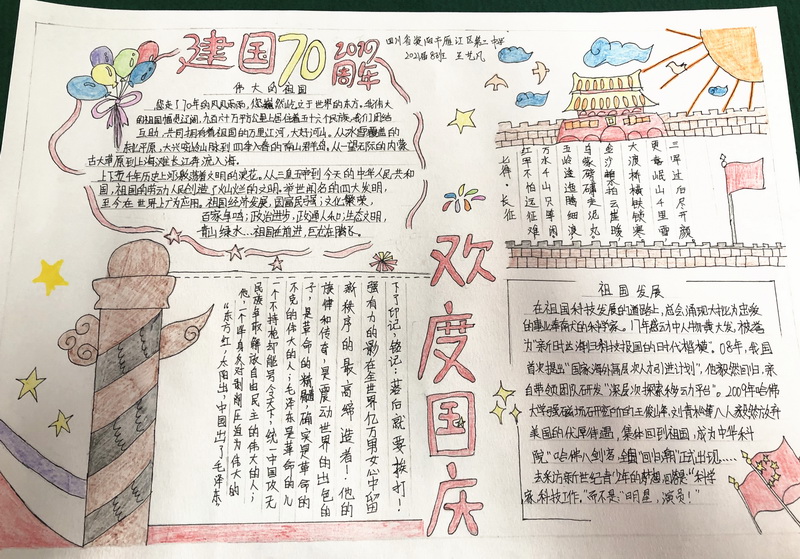 建国70
2019
周年
四川省资阳市雁江区第二中学
2021届8班 王艺凡
伟大的祖国
您走了70年的风风雨雨,您巍然屹立于世界的东方。我伟大
的祖国幅员辽阔,九百六十万平方公里上居住着五十六个民族,我们团结
互助,共同拥有着祖国的万里江河,大好河山。从冰雪覆盖的
东北平原,大兴安岭山脉到四季入春的南山半岛,从一望无际的内蒙
古大草原到上海滩长江奔流入海。
上下五千年历史上
闪烁着文明的浪花。从三皇五帝到今天的中华人民共和
国,祖国的劳动人民创造了灿烂的文明,举世闻名的四大发明,
至今在世界上广为应用。祖国经济发展,国富民强;文化繁荣,
百家争鸣;政治进步,政通人和;生态文明,
青山绿水…祖国在前进,巨龙在腾飞。
欢度国庆
七律·长征
红军不怕远征难
万水千山只等闲
五岭逶迤腾细浪
乌蒙磅礴走泥丸
金沙水拍云崖暖
大渡桥横铁锁寒
更喜岷山千里雪
三军过后尽开颜
下了印记,铭记:落后就要挨打!
强有力的影在全世界亿万男女心中留
新秩序的最高缔造者!他的
族律和传奇,是震动世界的出色的
子,是革命的精髓,确实是革命的
不克的伟大的人;毛泽东是革命的儿
一个不持枪却能号令天下,统一中国攻无
民族争取解放自由民主的伟大的人;
他,一个毕身反对剥削压迫为伟大的
“东方红,太阳出,中国出了毛泽东
祖国发展
在祖国科技发展的道路上,总会涌现大批为忠爱
的事业奉献的科学家。17年感动中人物黄大发,被落
为“新时出海归科技报国的时代楷模。08年,我国
首次提出“国家海外高层次人才引进计划”,他毅然回归,亲
自带领团队研发“深层次探索移动平台”。2009年哈佛
大学强磁场研究所的王俊峰、刘青松等八人毅然放弃
美国的优厚待遇,集体回到祖国,成为中华科
院“哈佛八剑客,全国“回归潮”正式出现……
去采访新世纪青少年的梦想,回答是“科学
家、科技工作,”而不是“明星,演员!”